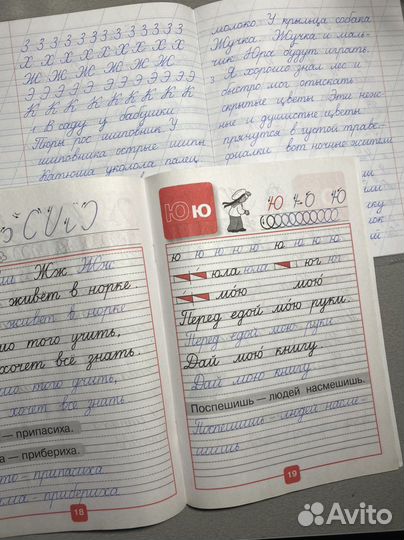 З З З З З З З З З З З З
Х Х Х Х Х Х Х Х Х
Ж Ж Ж Ж Ж Ж Ж
Э Э Э Э Э Э Э Э Э
К К К К К К К К
1 В саду у бабушки
рос шиповник У
шиповника острые шипы
Катюша уколола палец
молоко. У крыльца собака
Жучка. Жучка и маль-
чик Юра будут играть.
Я хорошо знал лес и
быстро мог отыскать
скрытые цветы Эти неж-
ные и душистые цветы
прянутся в густой траве.
фиалки вот ночные жители
Жж Жж
живёт в норке
живёт в норке
того учить,
хочет всё знать.
того учить,
хочет все знать
— припасиха.
— прибериха.
– припасиха
– прибериха
18
Ю ю
ю ю ю ю ю ю ю ю ю
юла юла юг юг
мою́ мо́ю
Перед едой мою руки.
Перед едой мою руки.
Дай мою книгу.
Дай мою книгу
Поспешишь — людей насмешишь.
Поспешишь – людей насме-
шишь
19
Avito